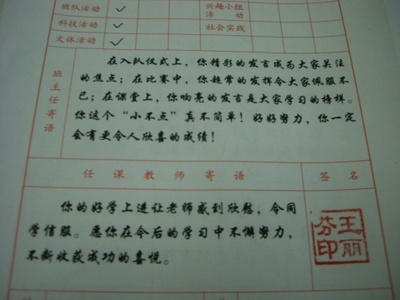 班队活动 ✓ 兴趣小组活动
科技活动 ✓ 社会实践
文体活动 ✓
班主任寄语
在入队仪式上，你精彩的发言成为大家关注
的焦点；在比赛中，你超常的发挥令大家佩服不
已；在课堂上，你响亮的发言是大家学习的榜样。
你这个“小不点”真不简单！好好努力，你一定
会有更令人欣喜的成绩！
任课教师寄语 签名
你的好学上进让老师感到欣慰，令同
学信服。愿你在今后的学习中不懈努力，
不断收获成功的喜悦。
王丽芬印